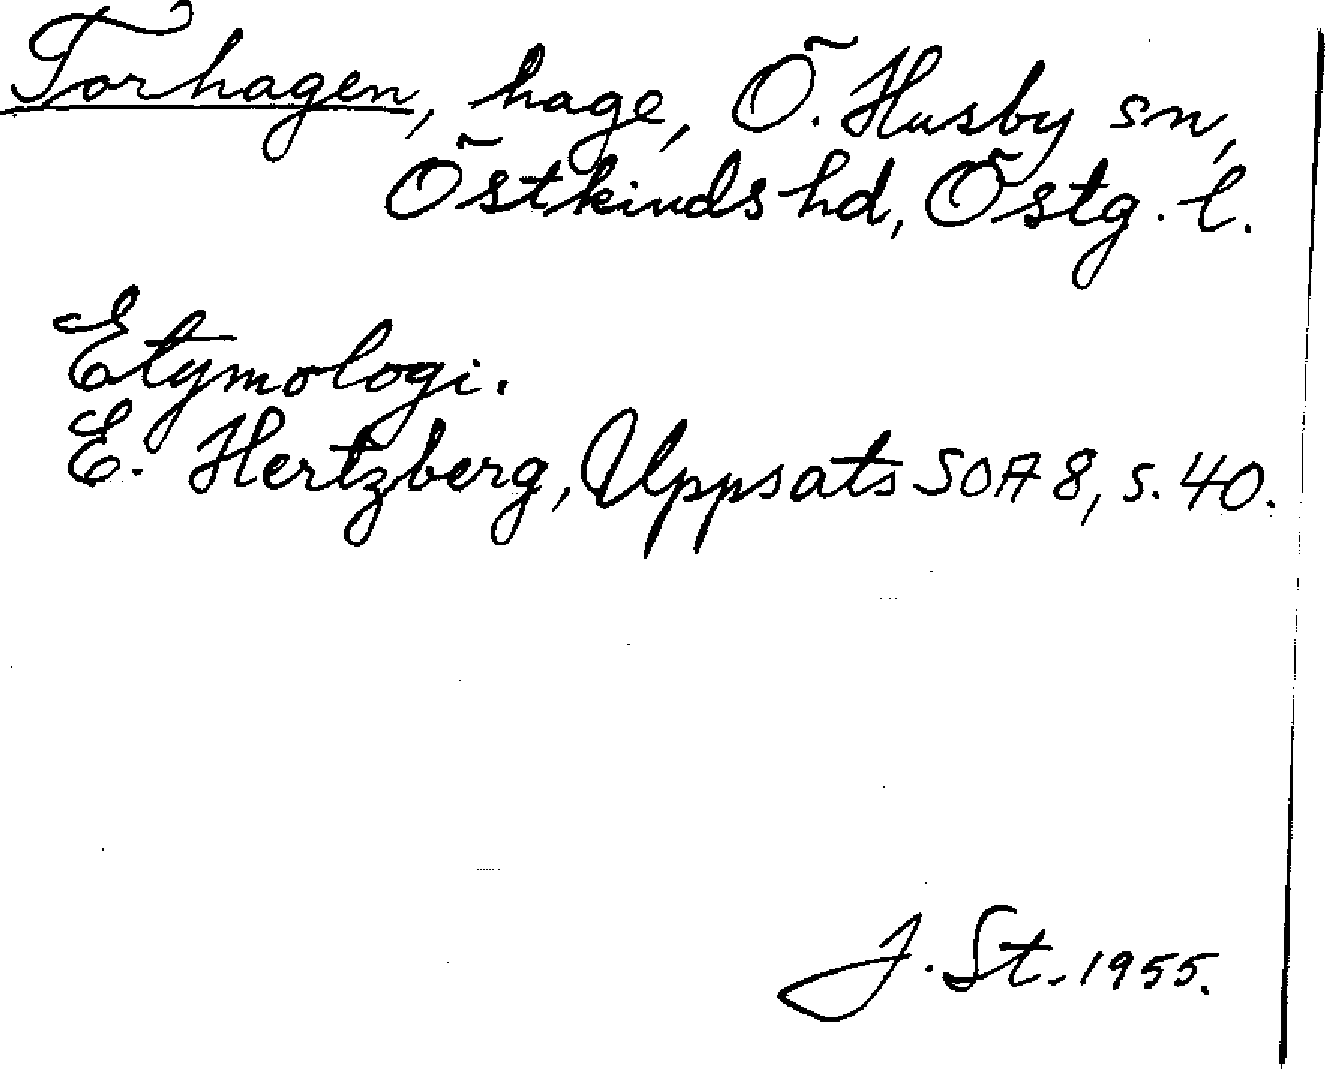 Torhagen, hage, Ö. Husby sn,
Östkinds hd, Östg. l.
Etymologi.
E. Hertzberg, Uppsats SOA 8, s. 40.
J. St. 1955.